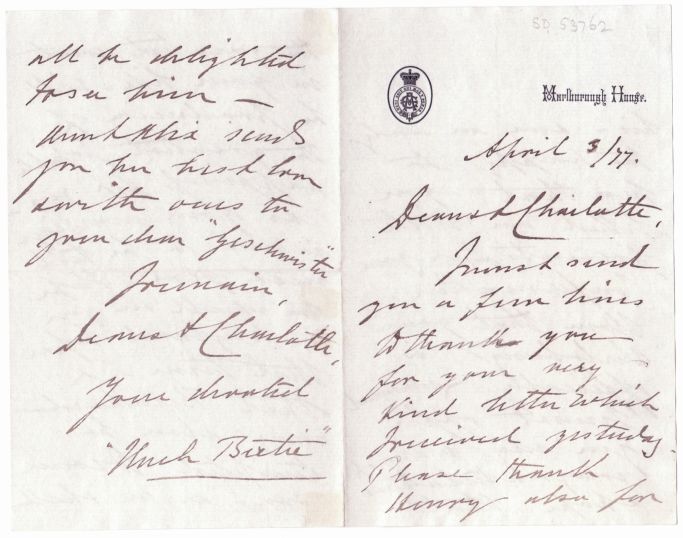 SD 53762
Marlborough House.
April 3/77.
Dearest Charlotte,
I must send
you a few lines
to thank you
for your very
kind letter which
I received yesterday.
Please thank
Henry also for
all be delighted
to see him —
Aunt Alix sends
you her best love
& with ours to
your dear "Geschwister"
I remain,
Dearest Charlotte,
Your devoted
"Uncle Bertie"